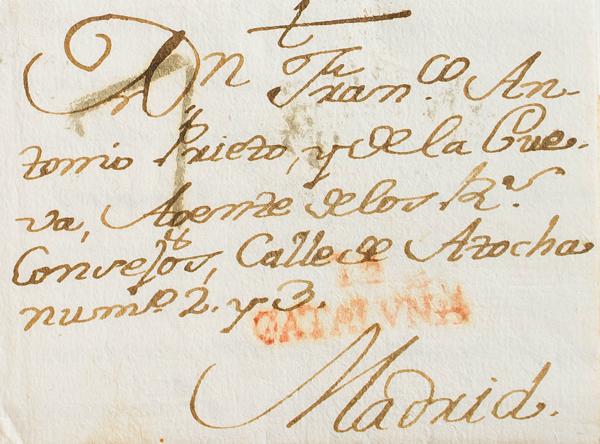 Dn Franco. An-
tonio Prieto, y de la Cue-
va, Agente de los Rs.
Consejos, Calle de Atocha
numo. 2. y 3.
CATALVÑA
Madrid.